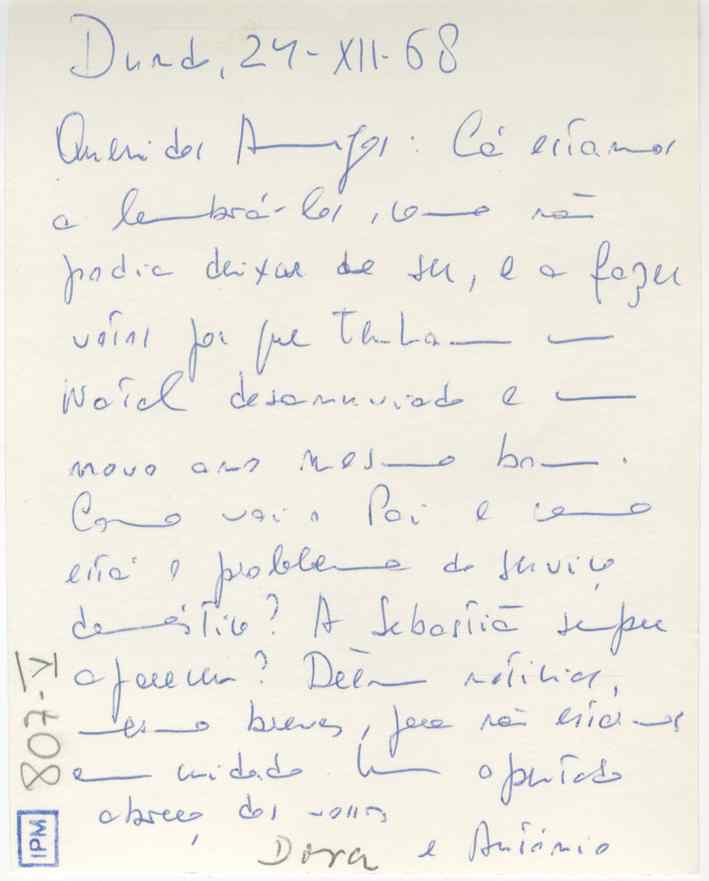 Dundo, 24-XII-68
Queridos Amigos: Cá estamos
a lembrá-los, como não
podia deixar de ser, e a fazer
votos por que tenham um
Natal desanuviado e um
novo ano mesmo bom.
Como vai o Pai e como
está o problema do serviço
doméstico? A Sebastiã sempre
apareceu? Dêem notícias,
mesmo breves, para não estarmos
em cuidado. Um apertado
abraço dos vossos
Dora e António
807-V
IPM